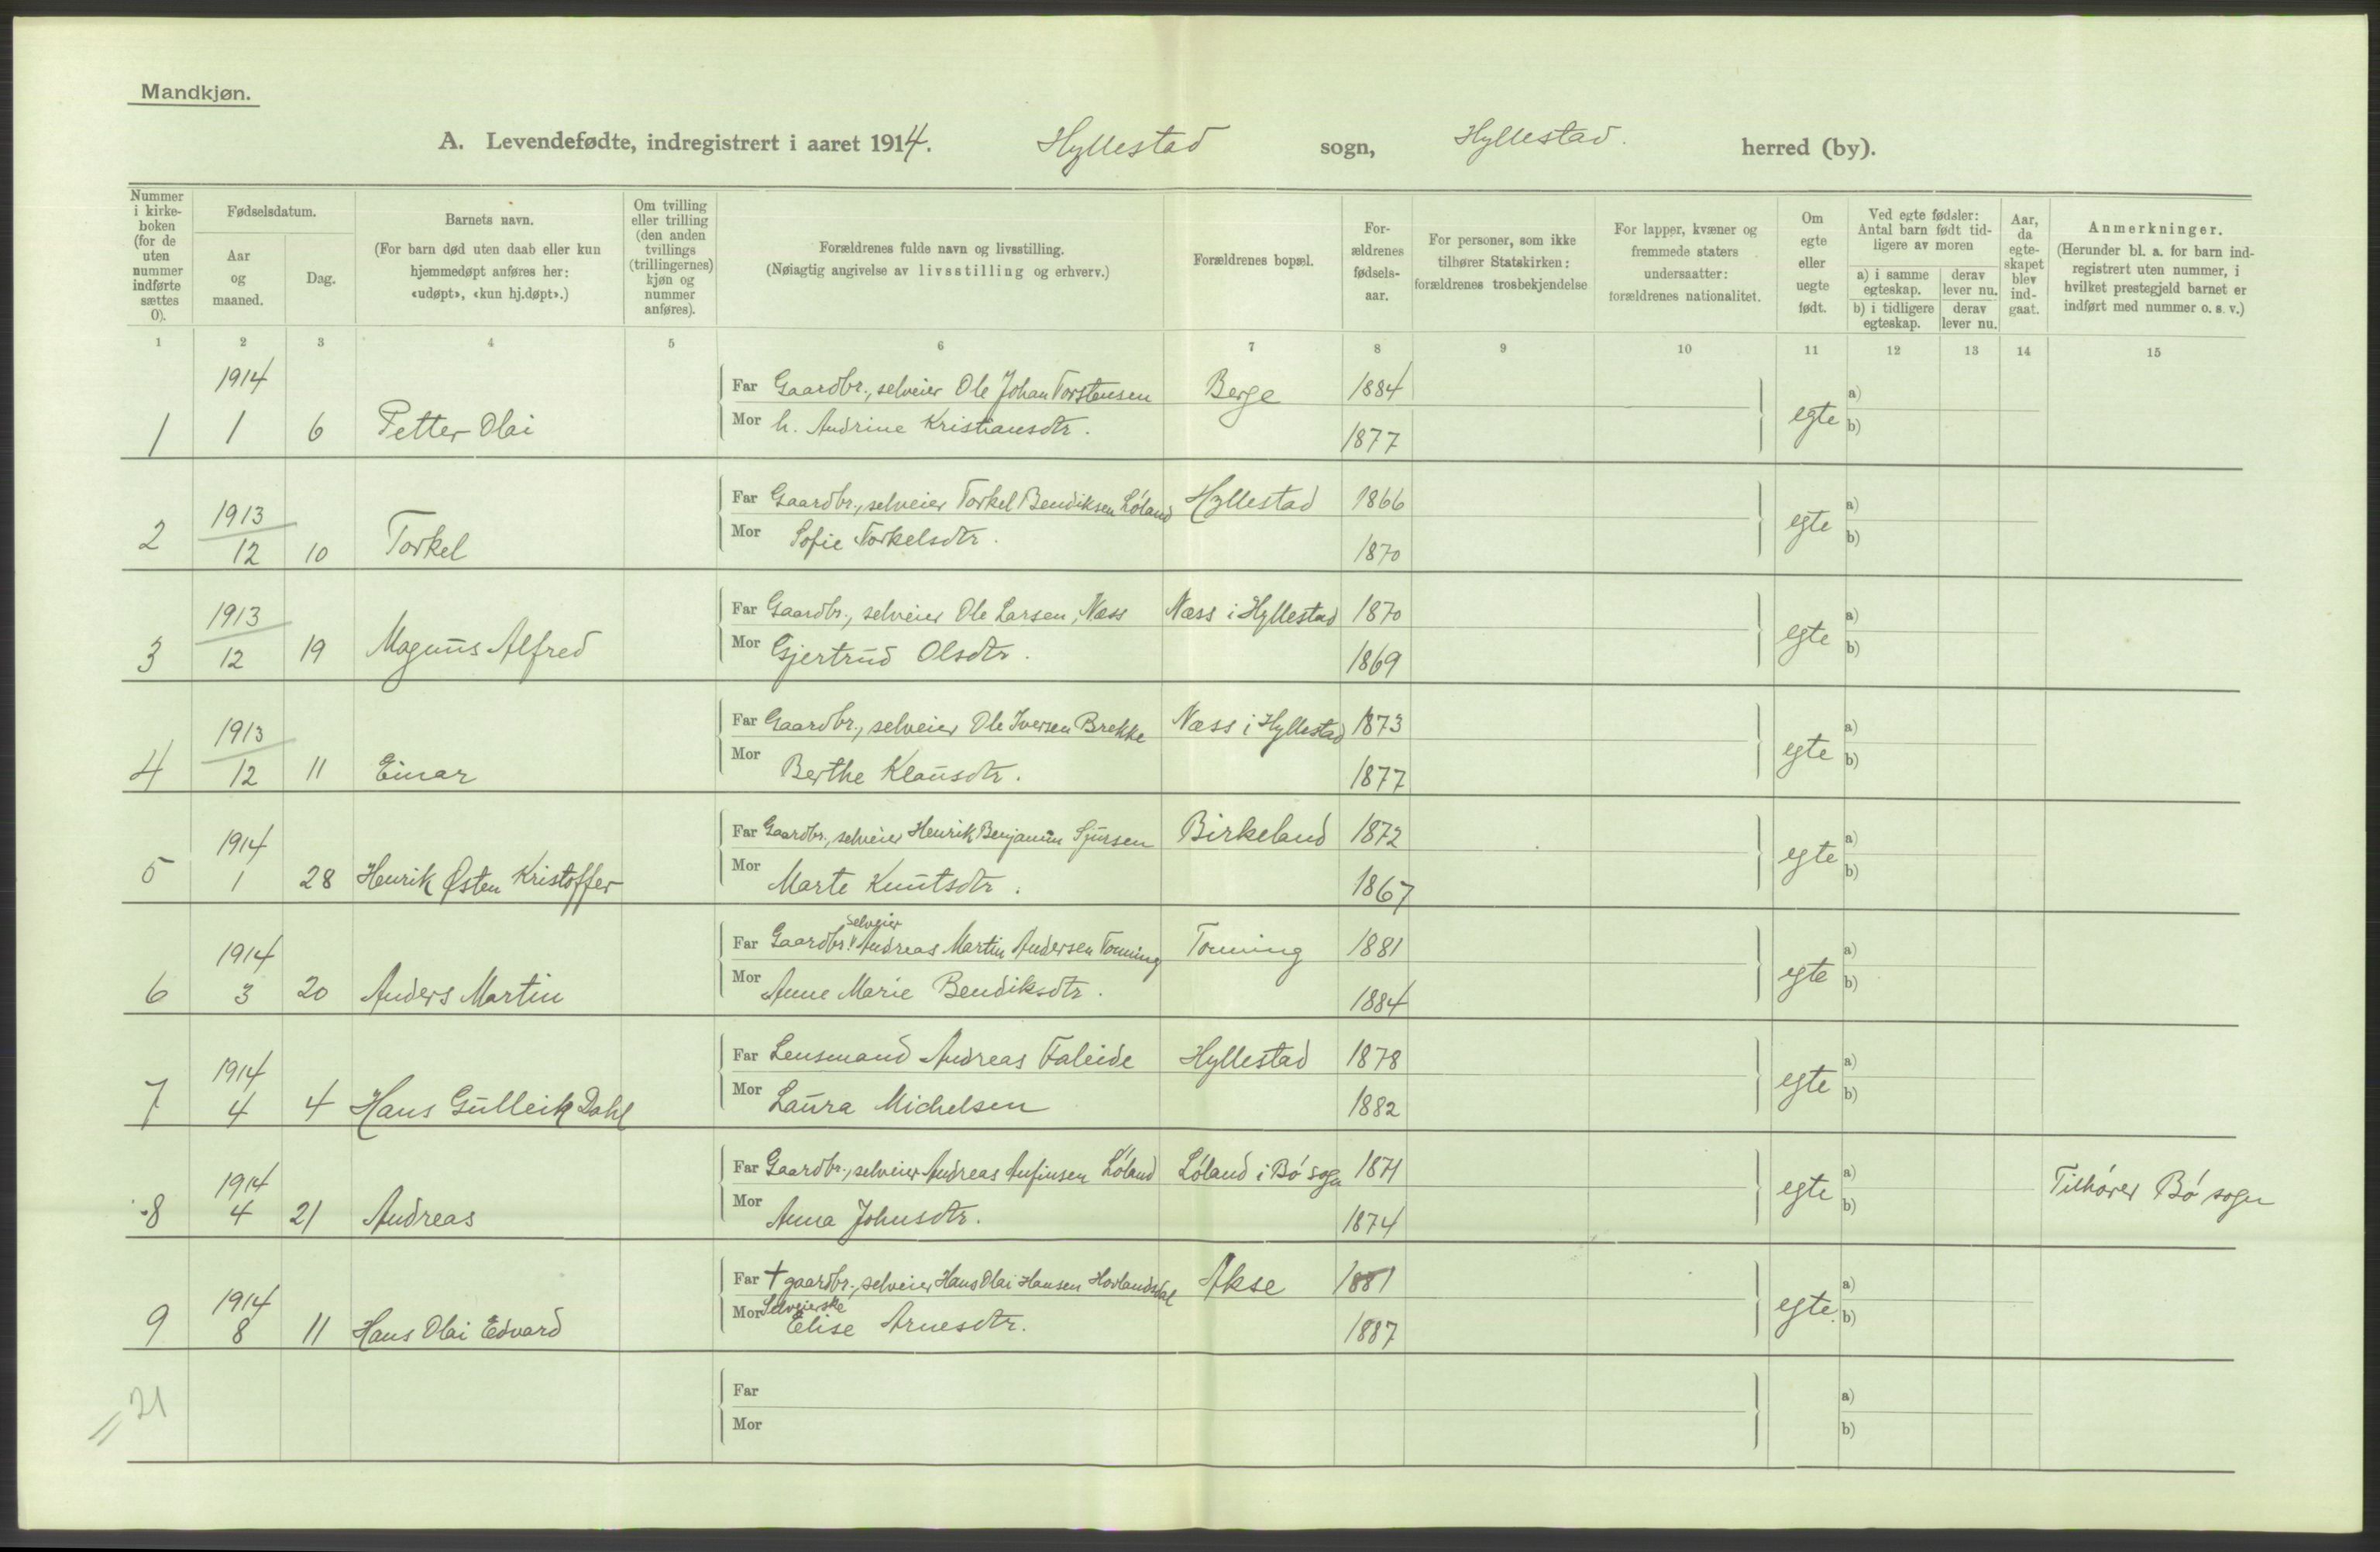 Mandkjøn.
A. Levendefødte, indregistrert i aaret 1914. Hyllestad sogn, Hyllestad. herred (by).
Nummer i kirke-boken (for de uten nummer indførte sættes 0).
Fødselsdatum.
Aar og maaned.
Dag.
Barnets navn.
(For barn død uten daab eller kun hjemmedøpt anføres her: «udøpt», «kun hj.døpt».)
Om tvilling eller trilling (den anden tvillings (trillingernes) kjøn og nummer anføres).
Forældrenes fulde navn og livsstilling.
(Nøiagtig angivelse av livsstilling og erhverv.)
Forældrenes bopæl.
For-ældrenes fødsels-aar.
For personer, som ikke tilhører Statskirken: forældrenes trosbekjendelse
For lapper, kvæner og fremmede staters undersaatter: forældrenes nationalitet.
Om egte eller uegte født.
Ved egte fødsler: Antal barn født tid-ligere av moren
a) i samme egteskap.
derav lever nu.
b) i tidligere egteskap.
derav lever nu.
Aar, da egte-skapet blev ind-gaat.
Anmerkninger.
(Herunder bl. a. for barn ind-registrert uten nummer, i hvilket prestegjeld barnet er indført med nummer o. s. v.)
1 2 3 4 5 6 7 8 9 10 11 12 13 14 15
1914 Far Gaardbr., selveier Ole Johan Torstensen Berge 1884 a)
1 1 6 Petter Olai Mor h. Andrine Kristiansdtr. 1877 egte b)
1913 Far Gaardbr., selveier Torkel Bendiksen Løland Hyllestad 1866 a)
2 12 10 Torkel Mor Sofie Torkelsdtr. 1870 egte b)
1913 Far Gaardbr., selveier Ole Larsen, Næss Næss i Hyllestad 1870 a)
3 12 19 Magnus Alfred Mor Gjertrud Olsdtr. 1869 egte b)
1913 Far Gaardbr., selveier Ole Iversen Brekke Næss i Hyllestad 1873 a)
4 12 11 Einar Mor Berthe Klausdtr. 1877 egte b)
1914 Far Gaardbr., selveier Henrik Benjamin Sjursen Birkeland 1872 a)
5 1 28 Henrik Østen Kristoffer Mor Marte Knutsdtr. 1867 egte b)
selveier
1914 Far Gaardbr. Andreas Martin Andersen Tonning Tonning 1881 a)
6 3 20 Anders Martin Mor Anne Marie Bendiksdtr. 1884 egte b)
1914 Far Lensmand Andreas Faleide Hyllestad 1878 a)
7 4 4 Hans Gulleik Dahl Mor Laura Michelsen 1882 egte b)
1914 Far Gaardbr., selveier Andreas Anfinsen Løland Løland i Bø sogn 1871 a) Tilhører Bø sogn
8 4 21 Andreas Mor Anna Johnsdtr. 1874 egte b)
1914 Far † gaardbr., selveier Hans Olai Hansen Hovlandsdal Akse 1881 a)
Selveierske
9 8 11 Hans Olai Edvard Mor Elise Arnesdtr. 1887 egte. b)
21 Far a)
Mor b)